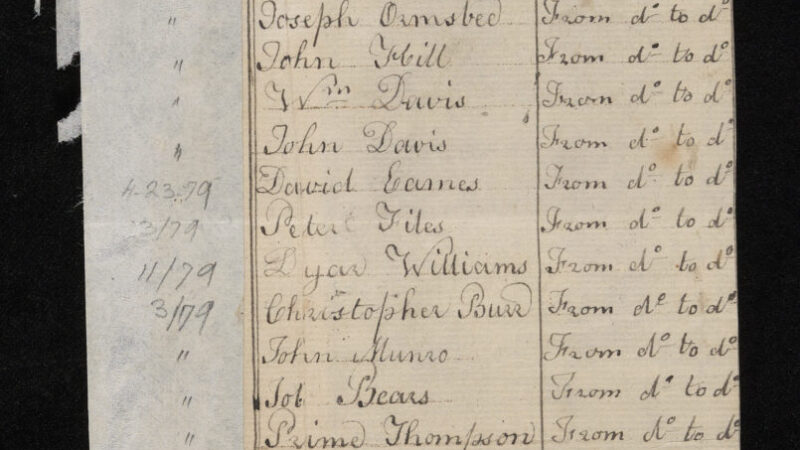 " Joseph Ormsbed From dº to dº
" John Hill From dº to dº
" Wm Davis From dº to dº
" John Davis From dº to dº
4-23-79 David Eames From dº to dº
3/79 Peter Files From dº to dº
11/79 Dyar Williams From dº to dº
3/79 Christopher Burr From dº to dº
" John Munro From dº to dº
" Job Bears From dº to dº
" Prime Thompson From dº to dº